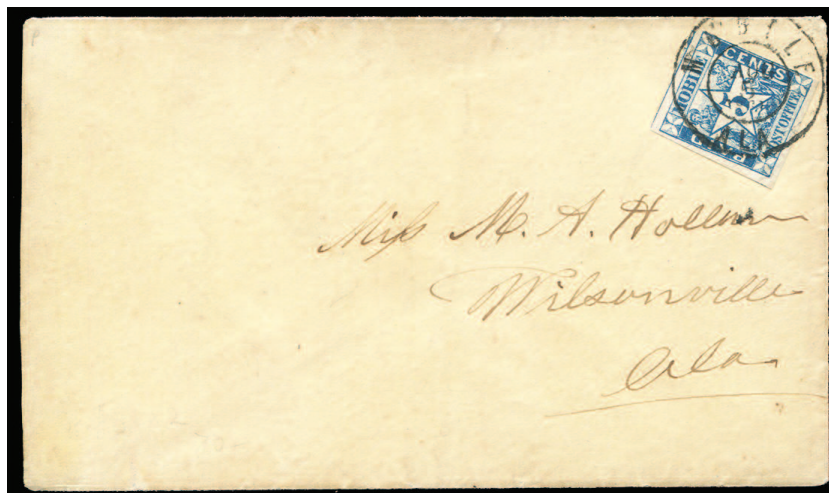 MOBILE
ALA
CENTS
MOBILE
5
POSTOFFICE
PAID
Miss M. A. Holleman
Wilsonville
Ala